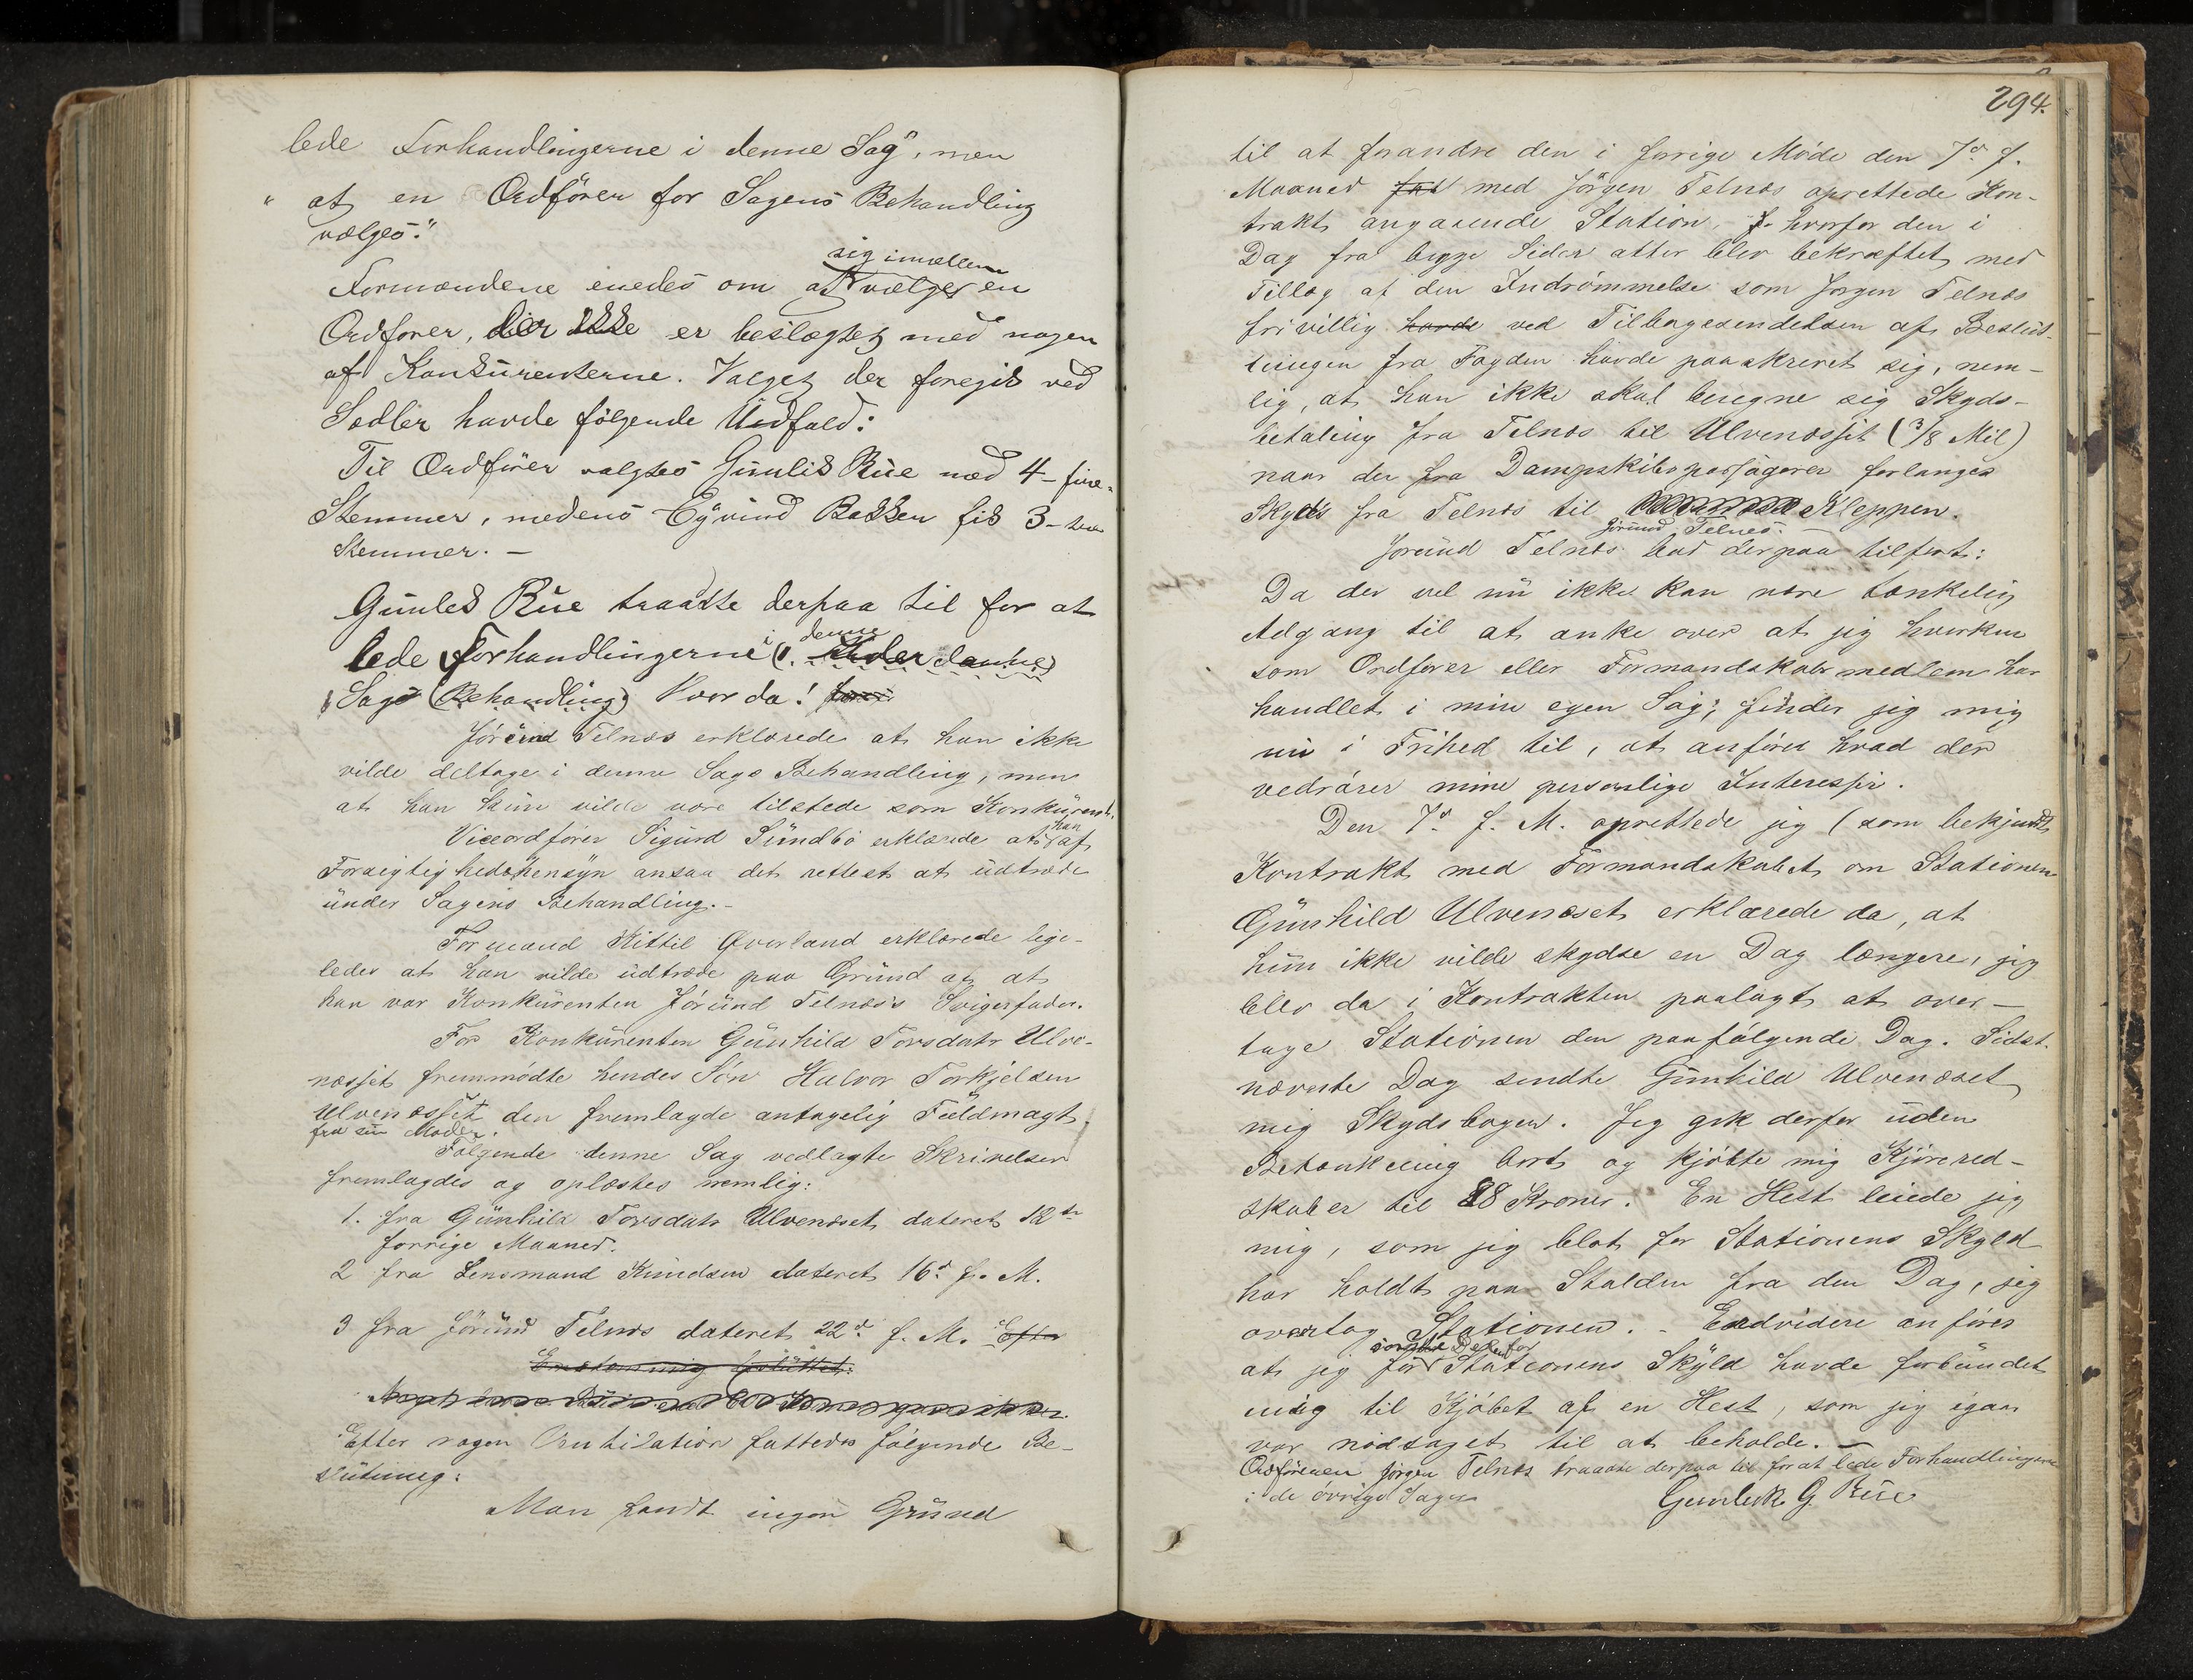 lede Forhandlingerne i denne Sag", men
" at en Ordförer for Sagens Behandling
vælges."
sig imellem
Formændene enedes om at vælge en
Ordförer, der ikke er beslægtet med nogen
af Konkurenterne. Valget der foregik ved
Sedler havde følgende Udfald:
Til Ordförer valgtes Gunlik Rue med 4 - fire -
Stemmer, medens Eyvind Bakken fik 3 - tre
Stemmer. -
Gunlek Rue traadte derpaa til for at
denne
lede Forhandlingerne i under denne
Sags (Behandling) Hvorda!
Jórund Telnæs erklærede at han ikke
vilde deltage i denne Sags Behandling, men
at han kun vilde være tilstede som Konkurent.
han
Viceordförer Sigurd Sundbö erklærede at af
Forsigtighedshensyn ansaa det rettest at udtræde
under Sagens Behandling. -
Formand Kittil Överland erklærede lige-
ledes at han vilde udtræde paa Grund af at
han var Konkurenten Jórund Telnæs's Svigerfader.
For Konkurenten Gunhild Torsdatr Ulve-
næsset fremmødte hendes Sön Halvor Torkjelsen
Ulvenæsset den fremlagde antagelig Fuldmagt
fra sin Moder.
Følgende denne Sag vedlagte Skrivelser
fremlagdes og oplæstes nemlig:
1. fra Gunhild Torsdatr Ulvenæset dateret 12te
forrige Maaned.
2 fra Lensmand Knudsen dateret 16d f. M.
3 fra Jórund Telnæs dateret 22d f. M. Efter
Efter nogen Ventilation fattedes følgende Be-
slutning:
Man fandt ingen Grund
294.
til at forandre den i forrige Møde den 7d f.
Maaned med Jörgen Telnæs oprettede Kon-
trakt angaaende Station, hvorfor den i
Dag fra begge Sider atter blev bekræftet med
Tillæg af den Indrömmelse som Jørgen Telnæs
frivillig havde ved Tilbagesendelsen af Beslut-
ningen fra Fogden havde paaskrevet sig, nem-
lig, at han ikke skal beregne sig Skyds-
betaling fra Telnæs til Ulvenæsset (3/8 Mil)
naar der fra Dampskibspassagerer forlanges
Skyds fra Telnæs til Kleppen.
Jórund Telnes.
Jorund Telnæs bad derpaa tilført:
Da der vel nu ikke kan være tænkelig
Adgang til at anke over at jeg hverken
som Ordfører eller Formandskabsmedlem har
handlet i min egen Sag; finder jeg mig
nu i Frihed til, at anföre hvad der
vedrører mine personlige Interesser.
Den 7d f. M. oprettede jeg (som bekjendt
Kontrakt med Formandskabet om Stationen
Gunhild Ulvenæset erklærede da, at
hun ikke vilde skydse en Dag længere, jeg
blev da i Kontrakten paalagt at over-
tage Stationen den paafølgende Dag. Sidst-
nævnte Dag sendte Gunhild Ulvenæset
mig Skydsbogen. Jeg gik derfor uden
Betænkning bort og kjøbte mig Kjørered-
skaber til 88 Kroner. En Hest leiede jeg
mig, som jeg blot for Stationens Skyld
har holdt paa Stalden fra den Dag, jeg
overtog Stationen. - Endvidere anføres
at jeg for Stationens Skyld havde forbundet
mig til Kjöbet af en Hest, som jeg igaar
var nødsaget til at beholde. -
Ordföreren Jörgen Telnæs traadte derpaa til for at lede Forhandlingerne
i de övrige Sager
Gunlek G. Rue